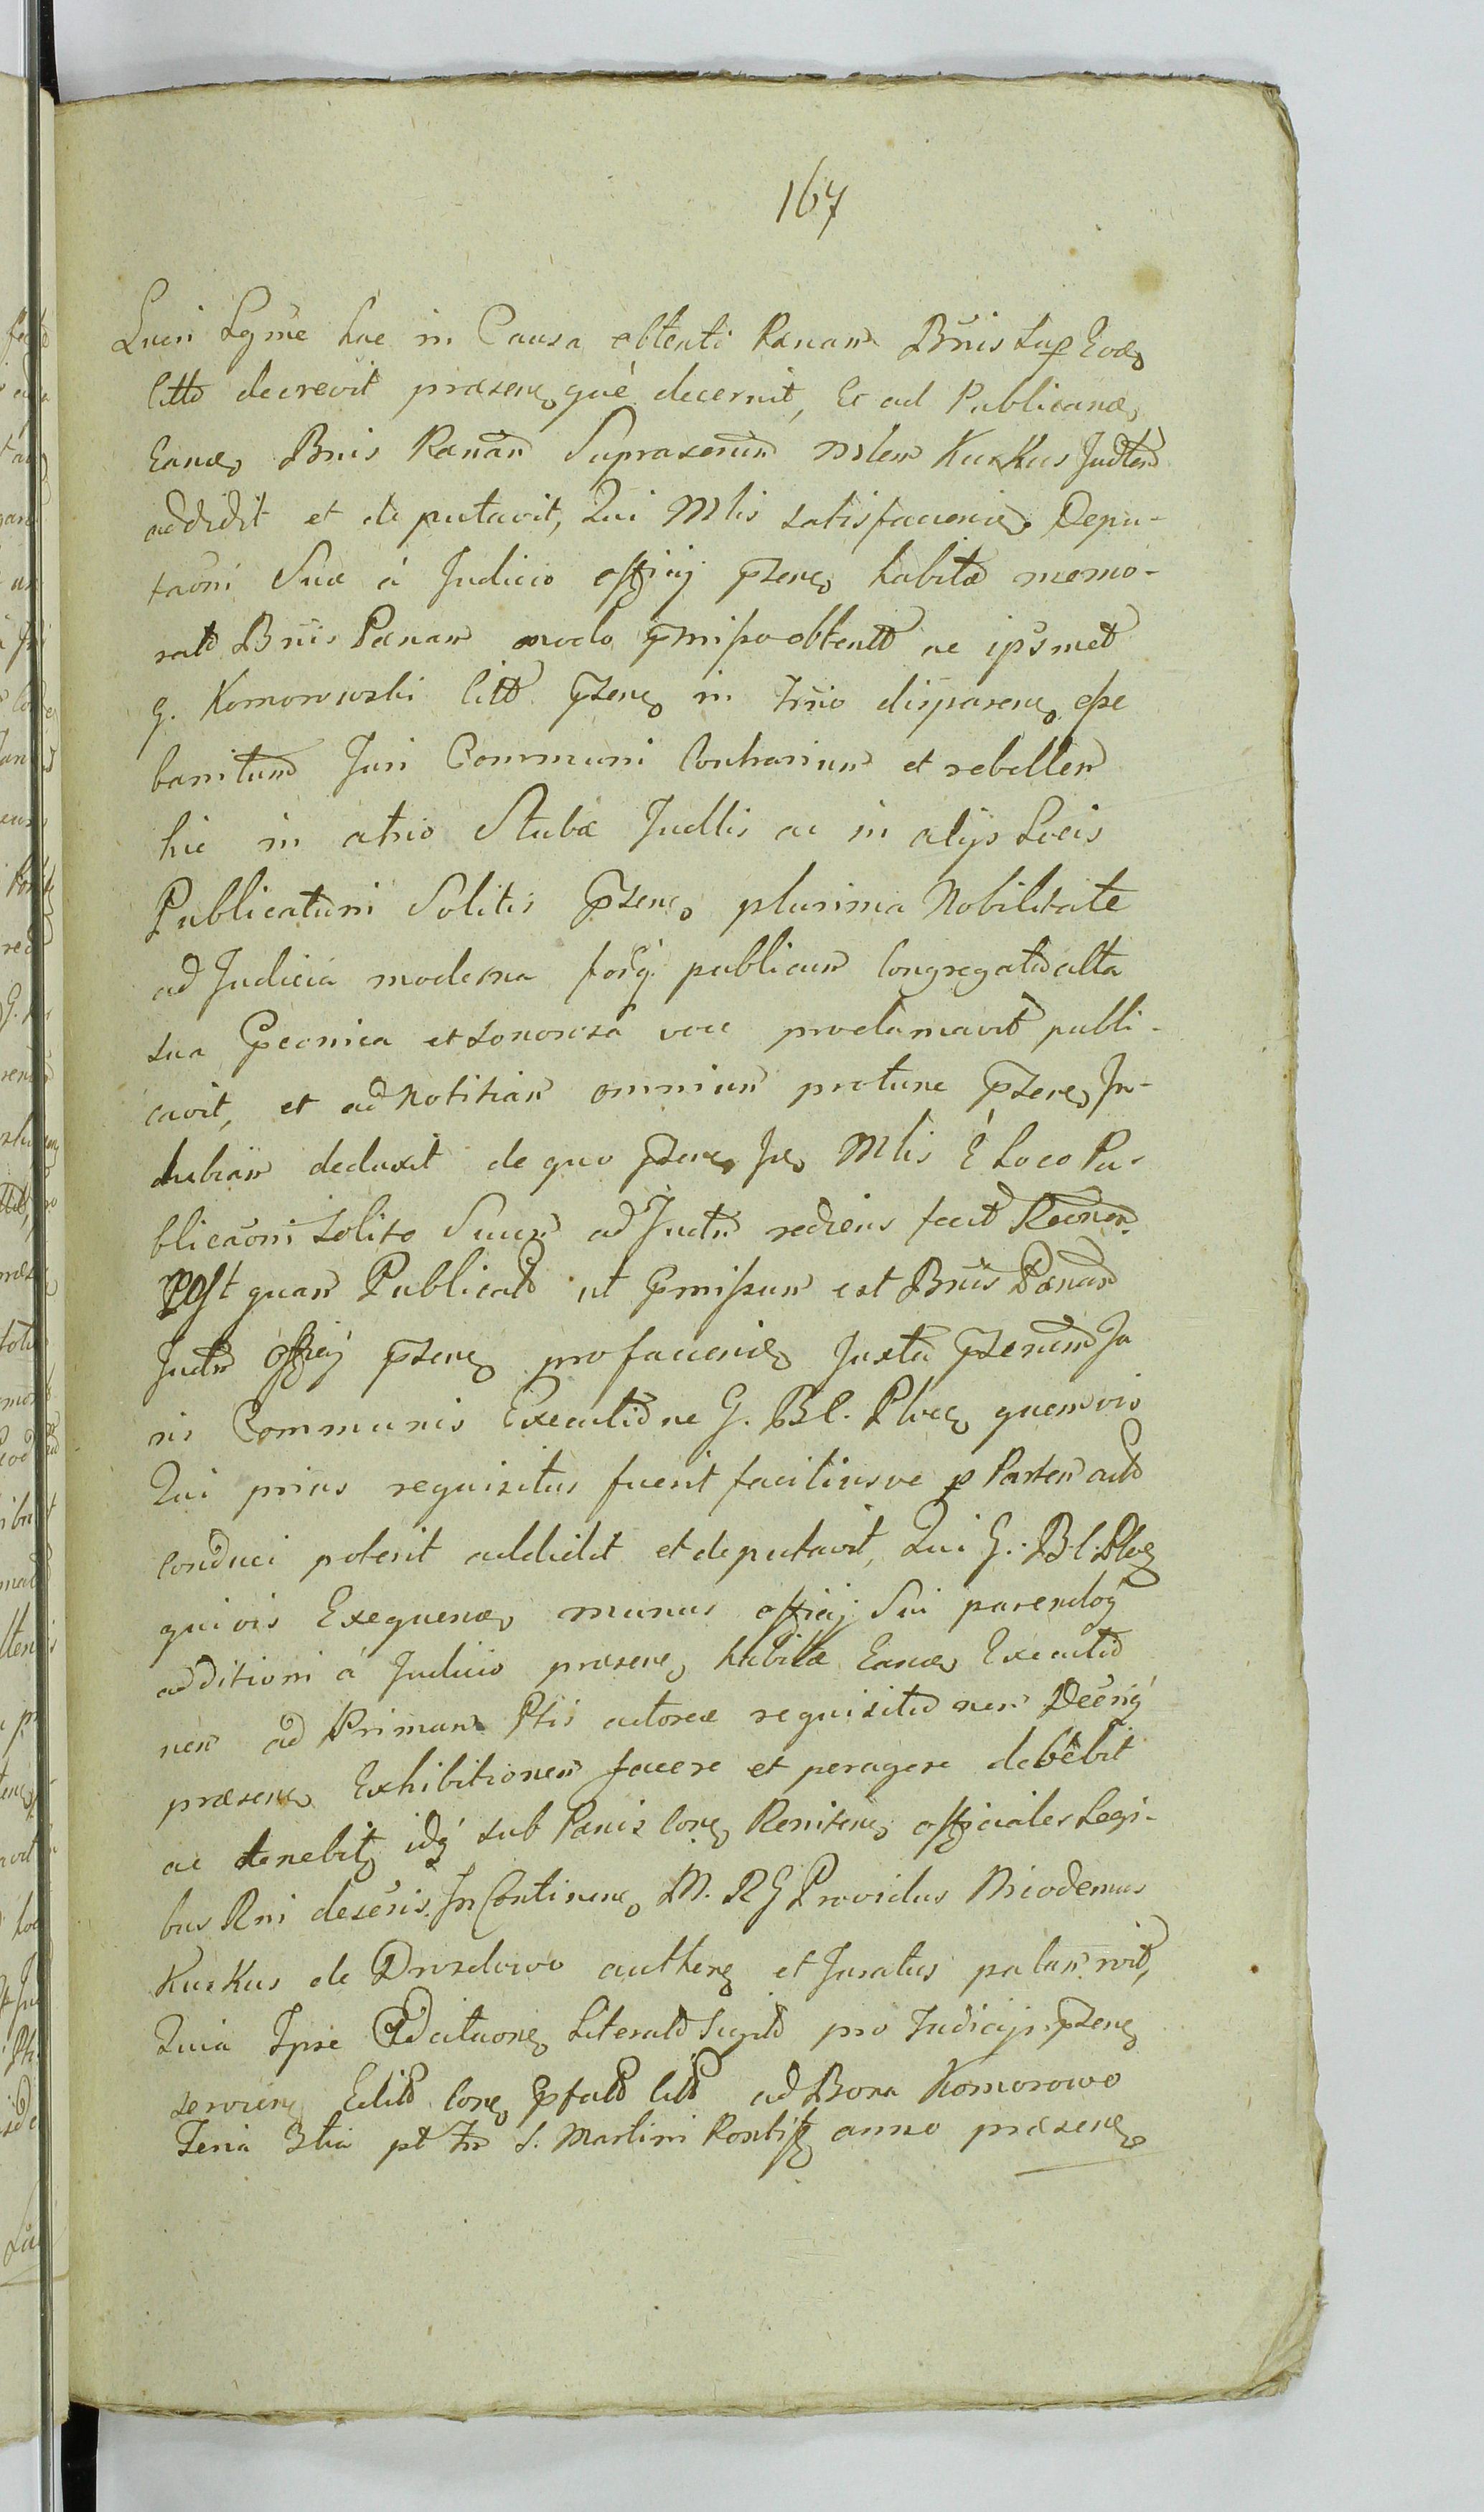 167
Lucri Lgme hac in Causa obtenti Pænam Bnis sup Evoe
litto decrevit præsenq què decernit, Et ad Publicand
Eand Bnis Pænam Supraxenm Mlem Kurkus Judlem
addidit et deputavit, Qui Mlis satisfaciend Depu-
taoni Suæ à Judicio officij pseng habitæ memo-
rato Bnis Pænam modo pmisso obtento ac ipsmet
G. Komorowski litto pseng in Trno disparene esse
banitum Juri Communi Contrarium et rebellem
hic in atrio Stubæ Judlis ac in alijs Locis
Publicationi Solitis pseng plurima Nobilitate
ad Judicia moderna forq publicum Congregata alta
sua Peonica et sonorosa voce proclamavit publi-
cavit, et ad notitiam omnium protunc psene In-
dubiam deduxit de quo pseng Jx Mlis è Loco Pu-
blicaoni solito Suum ad Juctm rediens fecit Reonem
Post quam Publicato ut pmissum est Bnis Pænam
Juctm officij pseng pro faciend Juxta psenem Ju
ris Communis Executione G. Bl. Plocg quemvis
Qui prius requisitus fuerit faciliusve p Partem acto
conduci poterit addidit et deputavit, Qui G. Bl. Plocg
quivis Exequend munus officij Sui parendoq
additioni à Judicio præsene habitæ Eand Executio
nem ad Primam Ptis actoreæ requisitionem Decriq
præsene Exhibitionem facere et peragere debebit
ac tenebitq idq sub Pænis Cong Renitene officiales Legi-
bus Rni descris. In Continene M. R G Providus Nicodemus
Kurkus de Drozdowo authenq et Juratus palam rcit,
Quia Ipse Adcitaoneq Literato Scripto pro Judicijs pseng
servieng Edito Cong pfato litto ad Bona Komorowo
Feria 3tia pt Fm S. Martini Pontifq anno præseng